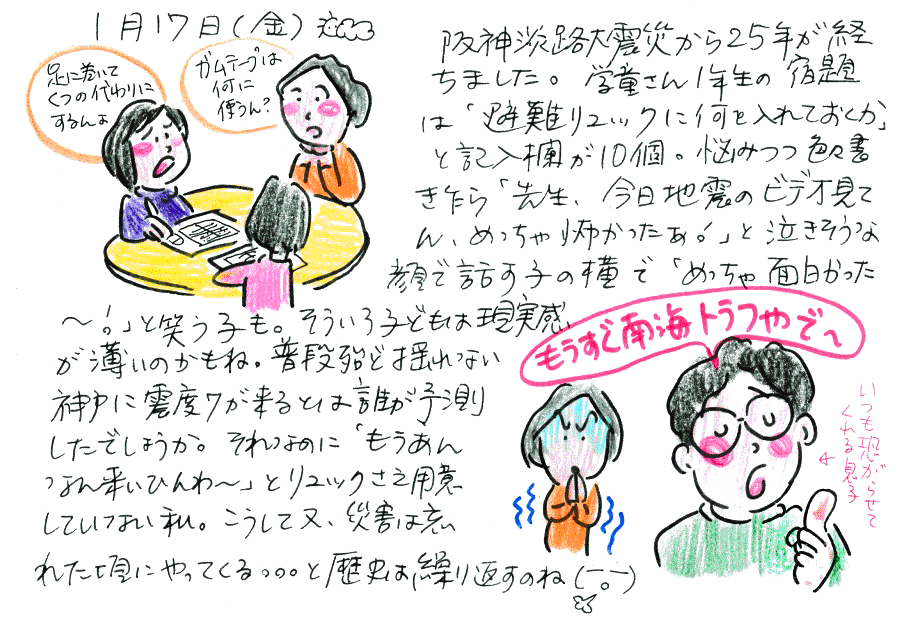 1月17日(金)
足に巻いて
くつの代わりに
するんよ
ガムテープは
何に
使うん?
阪神淡路大震災から25年が経
ちました。学童さん1年生の宿題
は「避難リュックに何を入れておくか」
と記入欄が10個。悩みつつ色々書
きたら「先生、今日地震のビデオ見て
ん、めっちゃ怖かったぁ!」と泣きそうな
顔で話す子の横で「めっちゃ面白かった
〜!」と笑う子も。そういう子どもは現実感
が薄いのかもね。普段殆ど揺れない
神戸に震度7が来るとは誰が予測
したでしょうか。それなのに「もうあん
なん来いひんわ〜」とリュックさえ用意
していない私。こうして又、災害は忘
れた頃にやってくる。。。と歴史は繰り返すのね(ー。ー)
もうすぐ南海トラフやで〜
いつも恐がらせて
くれる息子